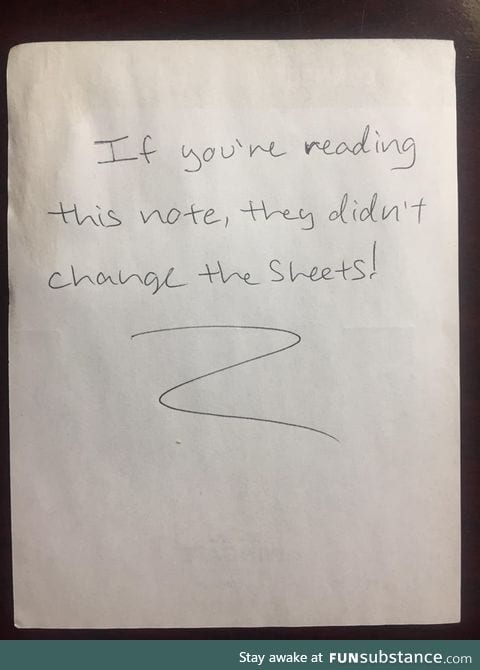 If you're reading
this note, they didn't
change the Sheets!
Stay awake at FUNsubstance.com